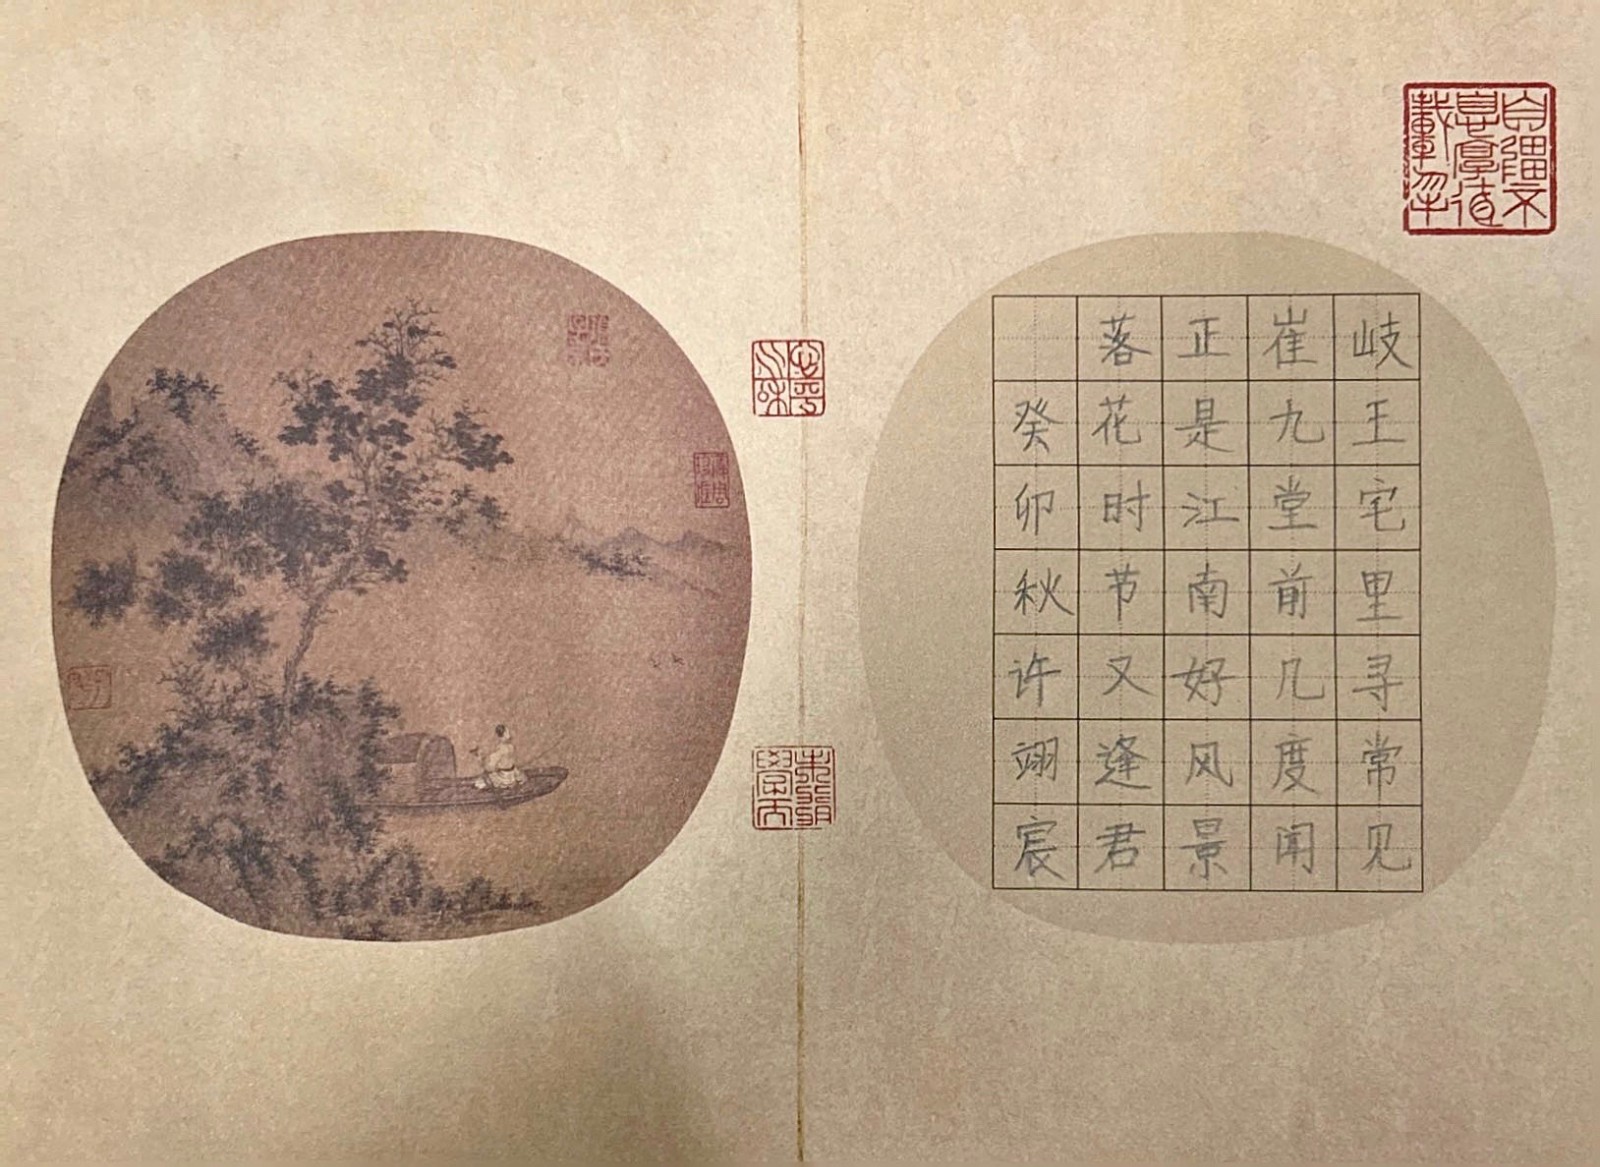 自彊不息厚德載物
岐王宅里寻常见
崔九堂前几度闻
正是江南好风景
落花时节又逢君
癸卯秋许翊宸